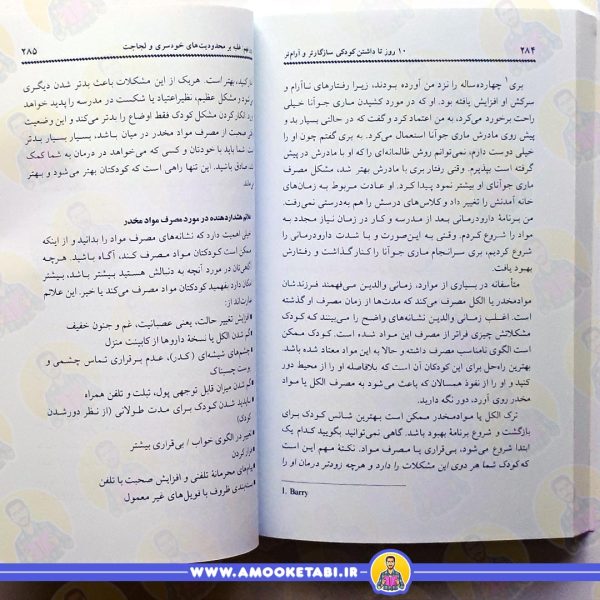 ۲۸۴
۱۰ روز تا داشتن کودکی سازگارتر و آرام‌تر
بری۱ چهارده‌ساله را نزد من آورده بودند، زیرا رفتارهای ناآرام و
سرکش او افزایش یافته بود. او که در مورد کشیدن ماری جوآنا خیلی
راحت برخورد می‌کرد، به من اعتماد کرد و گفت که در حالتی بسیار بد و
پیش روی مادرش ماری جوآنا استعمال می‌کرد. به بری گفتم چون او را
خیلی دوست دارم، نمی‌توانم روش ظالمانه‌ای را که او با مادرش در پیش
گرفته است بپذیرم. وقتی رفتار بری با مادرش بهتر شد، مشکل مصرف
ماری جوآنای او بیشتر نمود پیدا کرد. او عادت مربوط به زمان‌های
خانه آمدنش را تغییر داد و کلاس‌های درسش را هم به‌درستی نمی‌رفت.
من برنامهٔ دارودرمانی بعد از مدرسه و کار در زمان نیاز مجدد به
مواد را شروع کردم. وقتی به این‌صورت و با شدت دارودرمانی را
شروع کردم، بری سرانجام ماری جوآنا را کنار گذاشت و رفتارش
بهبود یافت.
متأسفانه در بسیاری از موارد، زمانی والدین می‌فهمند فرزندشان
موادمخدر یا الکل مصرف می‌کند که مدت‌ها از زمان مصرف او گذشته
است. اغلب زمانی والدین نشانه‌های واضح را می‌بینند که کودک
مشکلاتش چیزی فراتر از مصرف این مواد شده است. کودک ممکن
است الگوی نامناسب مصرف داشته و حالا به این مواد معتاد شده باشد.
بهترین راه‌حل برای این کودکان آن است که بلافاصله او را از محیط دور
کنید و او را از نفوذ همسالان که باعث می‌شود به مصرف الکل یا مواد
مخدر روی آورد، دور نگه دارید.
ترک الکل یا موادمخدر ممکن است بهترین شانس کودک برای
بازگشت و شروع برنامهٔ بهبود باشد. گاهی نمی‌توانید بگویید کدام یک
ابتدا شروع می‌شود، بی‌قراری یا مصرف مواد. نکتهٔ مهم این است
که کودک شما هر دوی این مشکلات را دارد و هرچه زودتر درمان او را
1. Barry
فهم: غلبه بر محدودیت‌های خودسری و لجاجت
۲۸۵
کنید، بهتر است. هریک از این مشکلات باعث بدتر شدن دیگری
مشکل عظیم، نظیر اعتیاد یا شکست در مدرسه را پدید خواهد
انکار کردن مشکل کودک فقط اوضاع را بدتر می‌کند و این وضعیت
صحبت از مصرف مواد مخدر در میان باشد، بسیار بسیار بدتر
شما باید با خودتان و کسی که می‌خواهد در درمان به شما کمک
صادق باشید. این تنها راهی است که کودکتان بهتر می‌شود و بهتر
علائم هشداردهنده در مورد مصرف مواد مخدر
خیلی اهمیت دارد که نشانه‌های مصرف مواد را بدانید و از اینکه
ممکن است کودکتان مواد مصرف کند، آگاه باشید. هرچه
آگاهی‌تان در مورد آنچه به دنبالش هستید بیشتر باشد، بیشتر
امکان دارد بفهمید کودکتان مواد مصرف می‌کند یا خیر. این علائم
عبارت‌اند از:
افزایش تغییر حالت، یعنی عصبانیت، غم و جنون خفیف
گم شدن الکل یا نسخهٔ داروها از کابینت منزل
چشم‌های شیشه‌ای (کدر)، عدم برقراری تماس چشمی و
پوست چسبناک
گم شدن میزان قابل توجهی پول، تبلت و تلفن همراه
ناپدید شدن کودک برای مدت طولانی (از نظر دور شدن
کودک)
تغییر در الگوی خواب / بی‌قراری بیشتر
فرار کردن
پیام‌های محرمانهٔ تلفنی و افزایش صحبت با تلفن
بسته‌بندی ظروف با فویل‌های غیر معمول
WWW.AMOOKETABI.IR